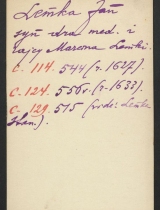 Lemka Jan
syn dra med. i
rajcy Marcina Lemki.
c. 114. 544 (r. 1627).
c. 124. 556v. (r. 1633).
c. 129. 515 (vide: Lemka
Stan.).